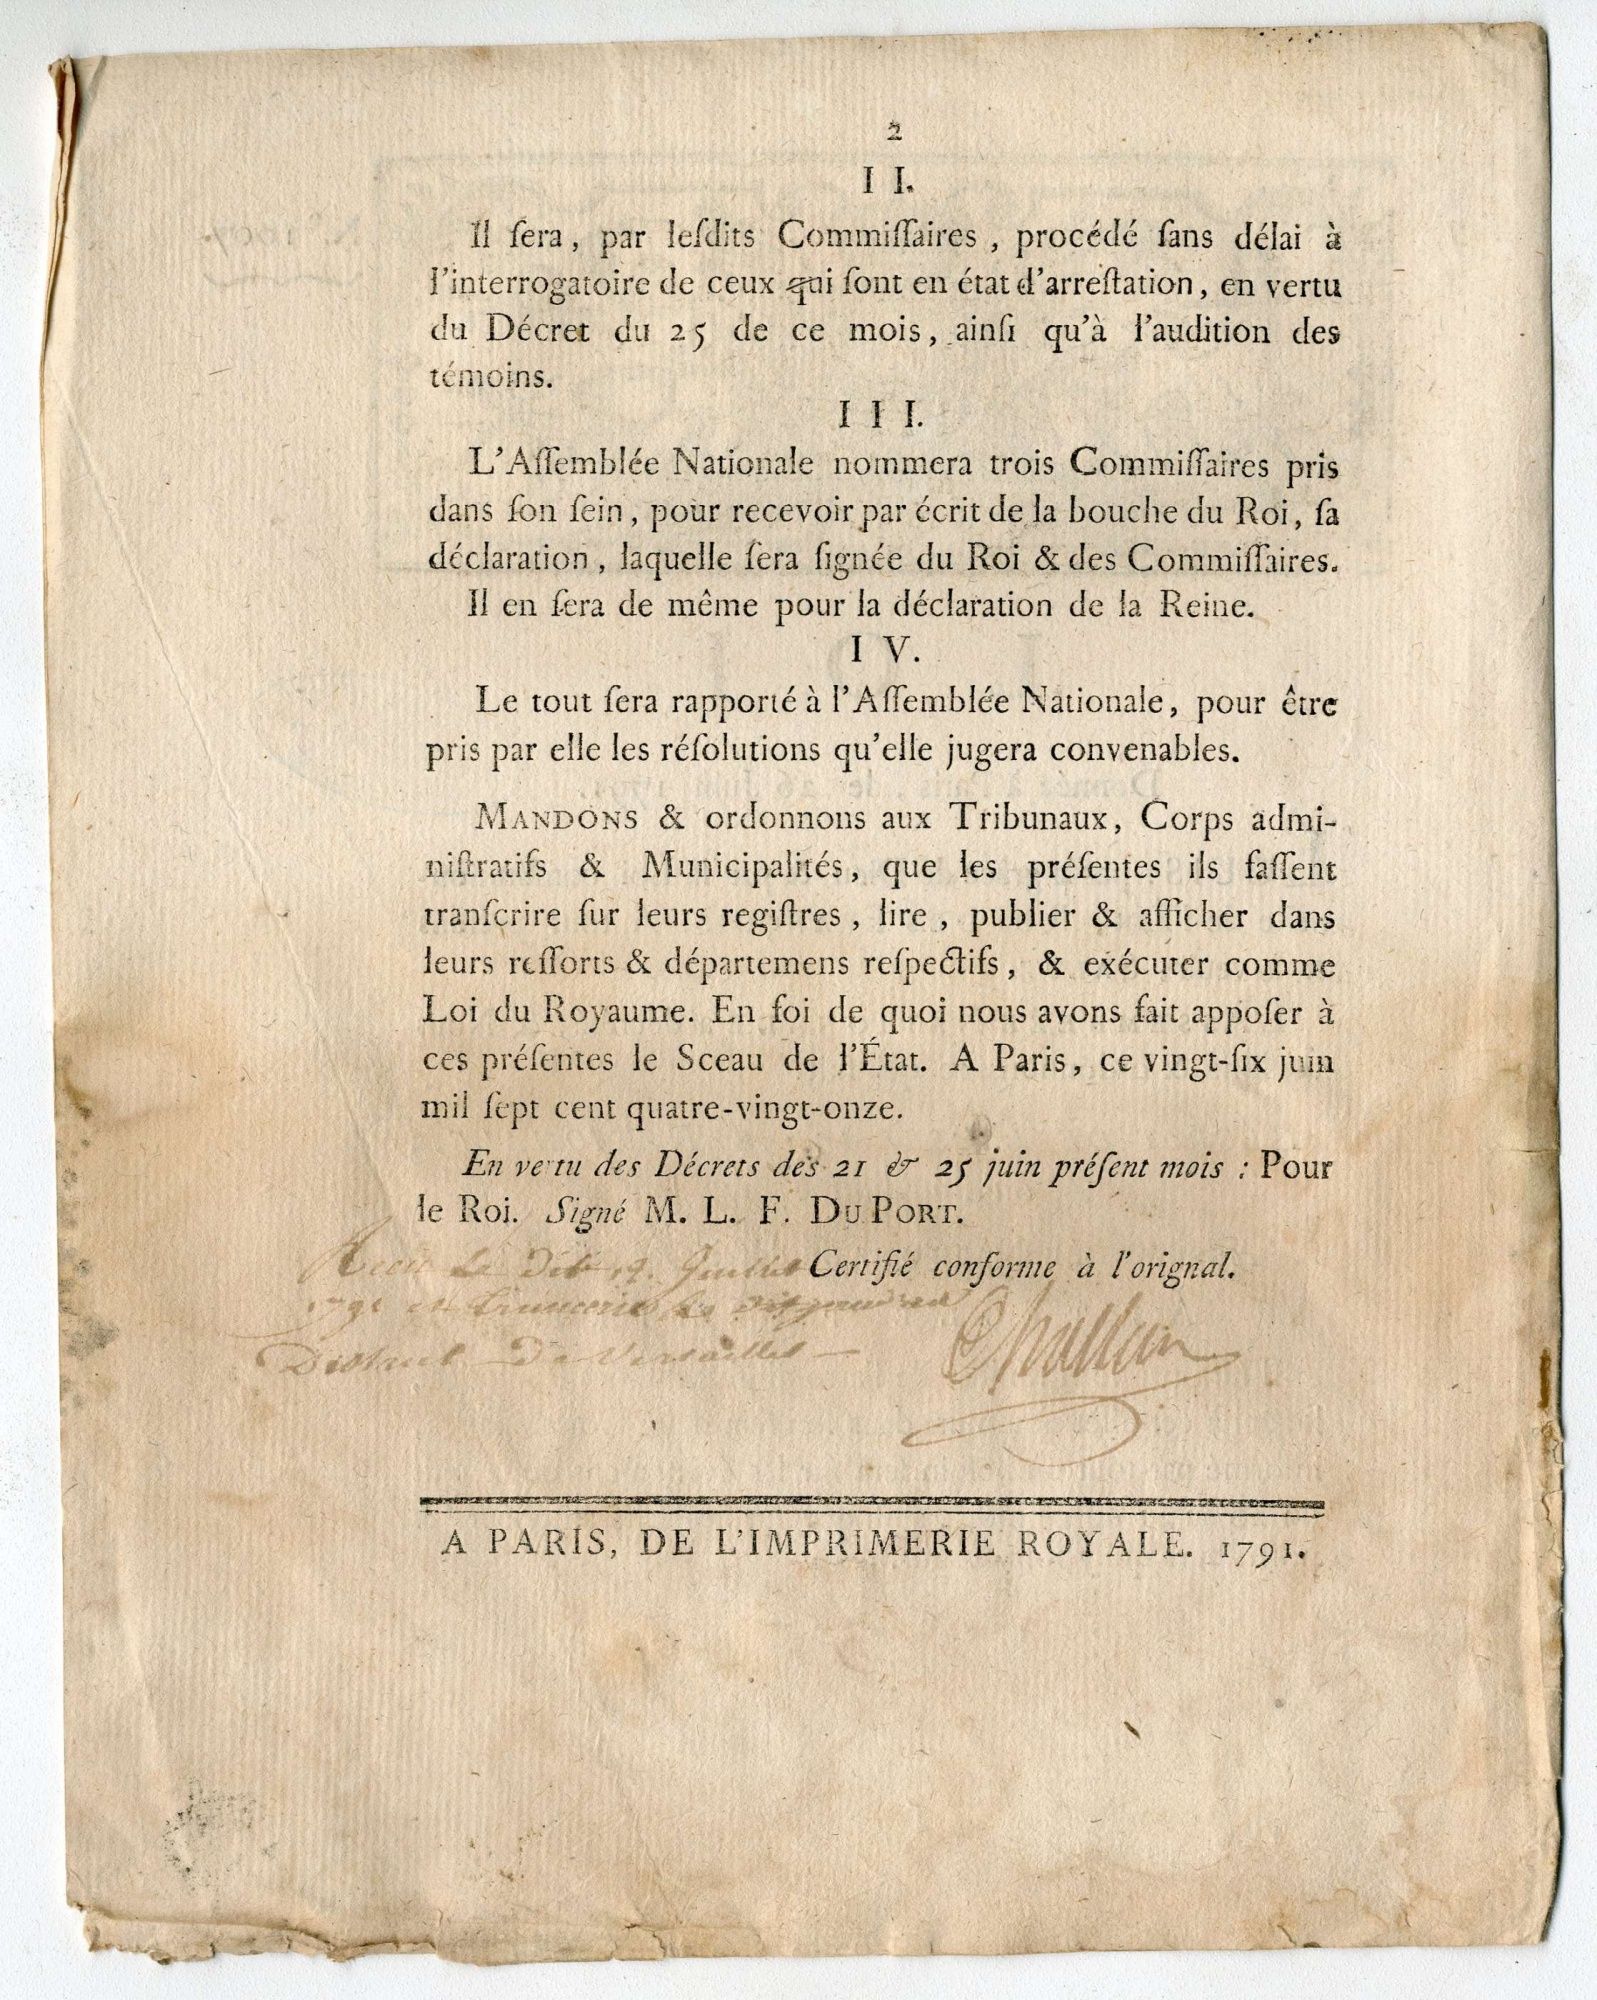 2
I I.
Il ſera, par leſdits Commiſſaires, procédé ſans délai à
l'interrogatoire de ceux qui ſont en état d'arreſtation, en vertu
du Décret du 25 de ce mois, ainſi qu'à l'audition des
témoins.
I I I.
L'Aſſemblée Nationale nommera trois Commiſſaires pris
dans ſon ſein, pour recevoir par écrit de la bouche du Roi, ſa
déclaration, laquelle ſera ſignée du Roi & des Commiſſaires.
Il en ſera de même pour la déclaration de la Reine.
I V.
Le tout ſera rapporté à l'Aſſemblée Nationale, pour être
pris par elle les réſolutions qu'elle jugera convenables.
MANDONS & ordonnons aux Tribunaux, Corps admi-
niſtratifs & Municipalités, que les préſentes ils faſſent
tranſcrire ſur leurs regiſtres, lire, publier & afficher dans
leurs reſſorts & départemens reſpectifs, & exécuter comme
Loi du Royaume. En foi de quoi nous avons fait appoſer à
ces préſentes le Sceau de l'État. A Paris, ce vingt-ſix juin
mil ſept cent quatre-vingt-onze.
En vertu des Décrets des 21 & 25 juin préſent mois : Pour
le Roi. Signé M. L. F. DU PORT.
Certifié conforme à l'orignal.
Juillet
1791
Challan
De Versailles
A PARIS, DE L'IMPRIMERIE ROYALE. 1791.